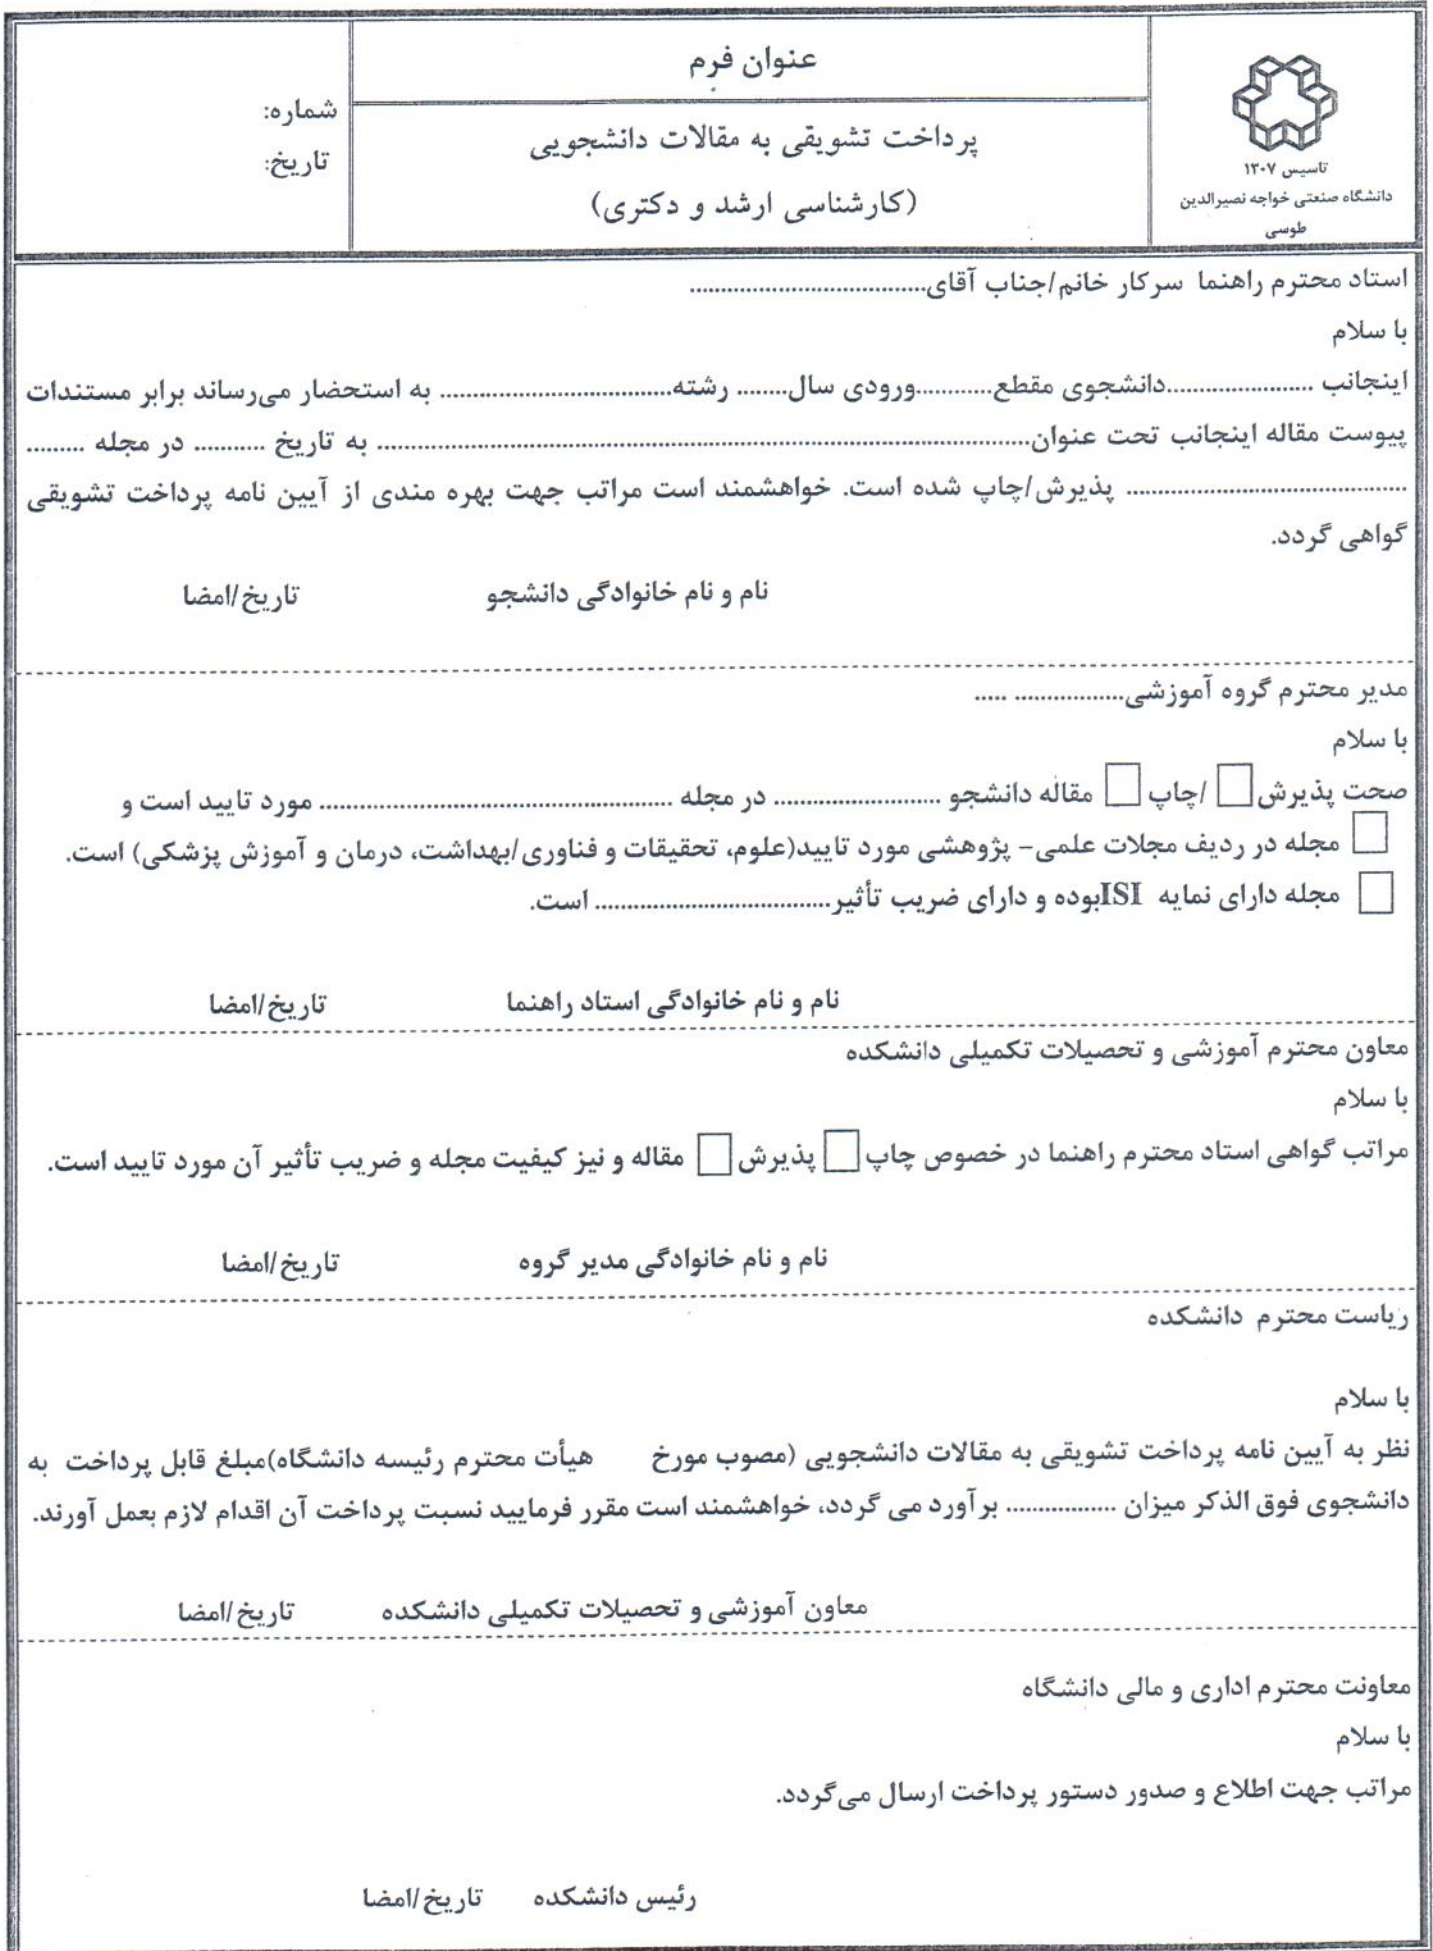 عنوان فرم
پرداخت تشویقی به مقالات دانشجویی
(کارشناسی ارشد و دکتری)
تاسیس ۱۳۰۷
دانشگاه صنعتی خواجه نصیرالدین
طوسی
شماره:
تاریخ:
استاد محترم راهنما سرکار خانم/جناب آقای....................................
با سلام
اینجانب ......................دانشجوی مقطع...........ورودی سال........ رشته................................... به استحضار می‌رساند برابر مستندات
پیوست مقاله اینجانب تحت عنوان.................................................................................................... به تاریخ ........... در مجله .........
........................................... پذیرش/چاپ شده است. خواهشمند است مراتب جهت بهره مندی از آیین نامه پرداخت تشویقی
گواهی گردد.
نام و نام خانوادگی دانشجو تاریخ/امضا
مدیر محترم گروه آموزشی................. .....
با سلام
صحت پذیرش□ /چاپ□ مقاله دانشجو ......................... در مجله ...................................................... مورد تایید است و
□ مجله در ردیف مجلات علمی- پژوهشی مورد تایید(علوم، تحقیقات و فناوری/بهداشت، درمان و آموزش پزشکی) است.
□ مجله دارای نمایه ISIبوده و دارای ضریب تأثیر.................................... است.
نام و نام خانوادگی استاد راهنما تاریخ/امضا
معاون محترم آموزشی و تحصیلات تکمیلی دانشکده
با سلام
مراتب گواهی استاد محترم راهنما در خصوص چاپ□ پذیرش□ مقاله و نیز کیفیت مجله و ضریب تأثیر آن مورد تایید است.
نام و نام خانوادگی مدیر گروه تاریخ/امضا
ریاست محترم دانشکده
با سلام
نظر به آیین نامه پرداخت تشویقی به مقالات دانشجویی (مصوب مورخ هیأت محترم رئیسه دانشگاه)مبلغ قابل پرداخت به
دانشجوی فوق الذکر میزان ................. برآورد می گردد، خواهشمند است مقرر فرمایید نسبت پرداخت آن اقدام لازم بعمل آورند.
معاون آموزشی و تحصیلات تکمیلی دانشکده تاریخ/امضا
معاونت محترم اداری و مالی دانشگاه
با سلام
مراتب جهت اطلاع و صدور دستور پرداخت ارسال می‌گردد.
رئیس دانشکده تاریخ/امضا